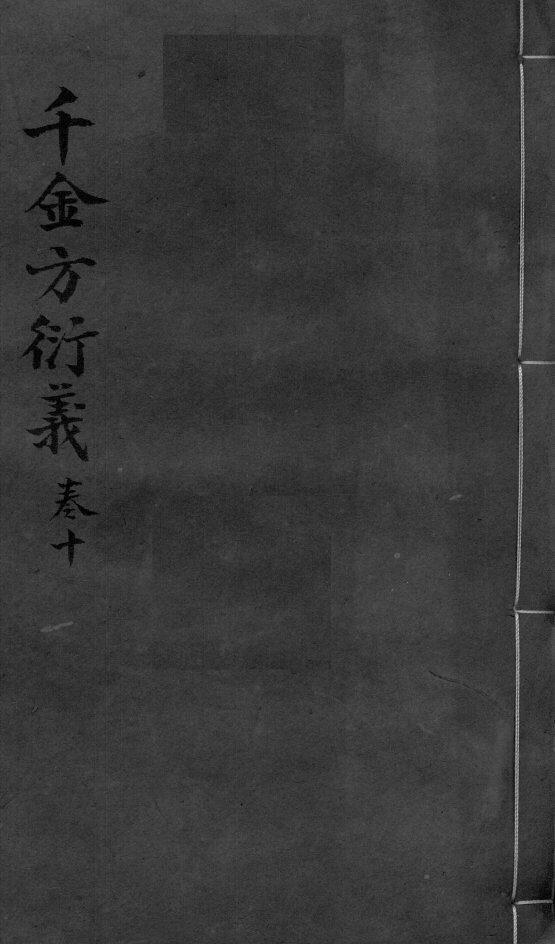 千金方衍義 卷十